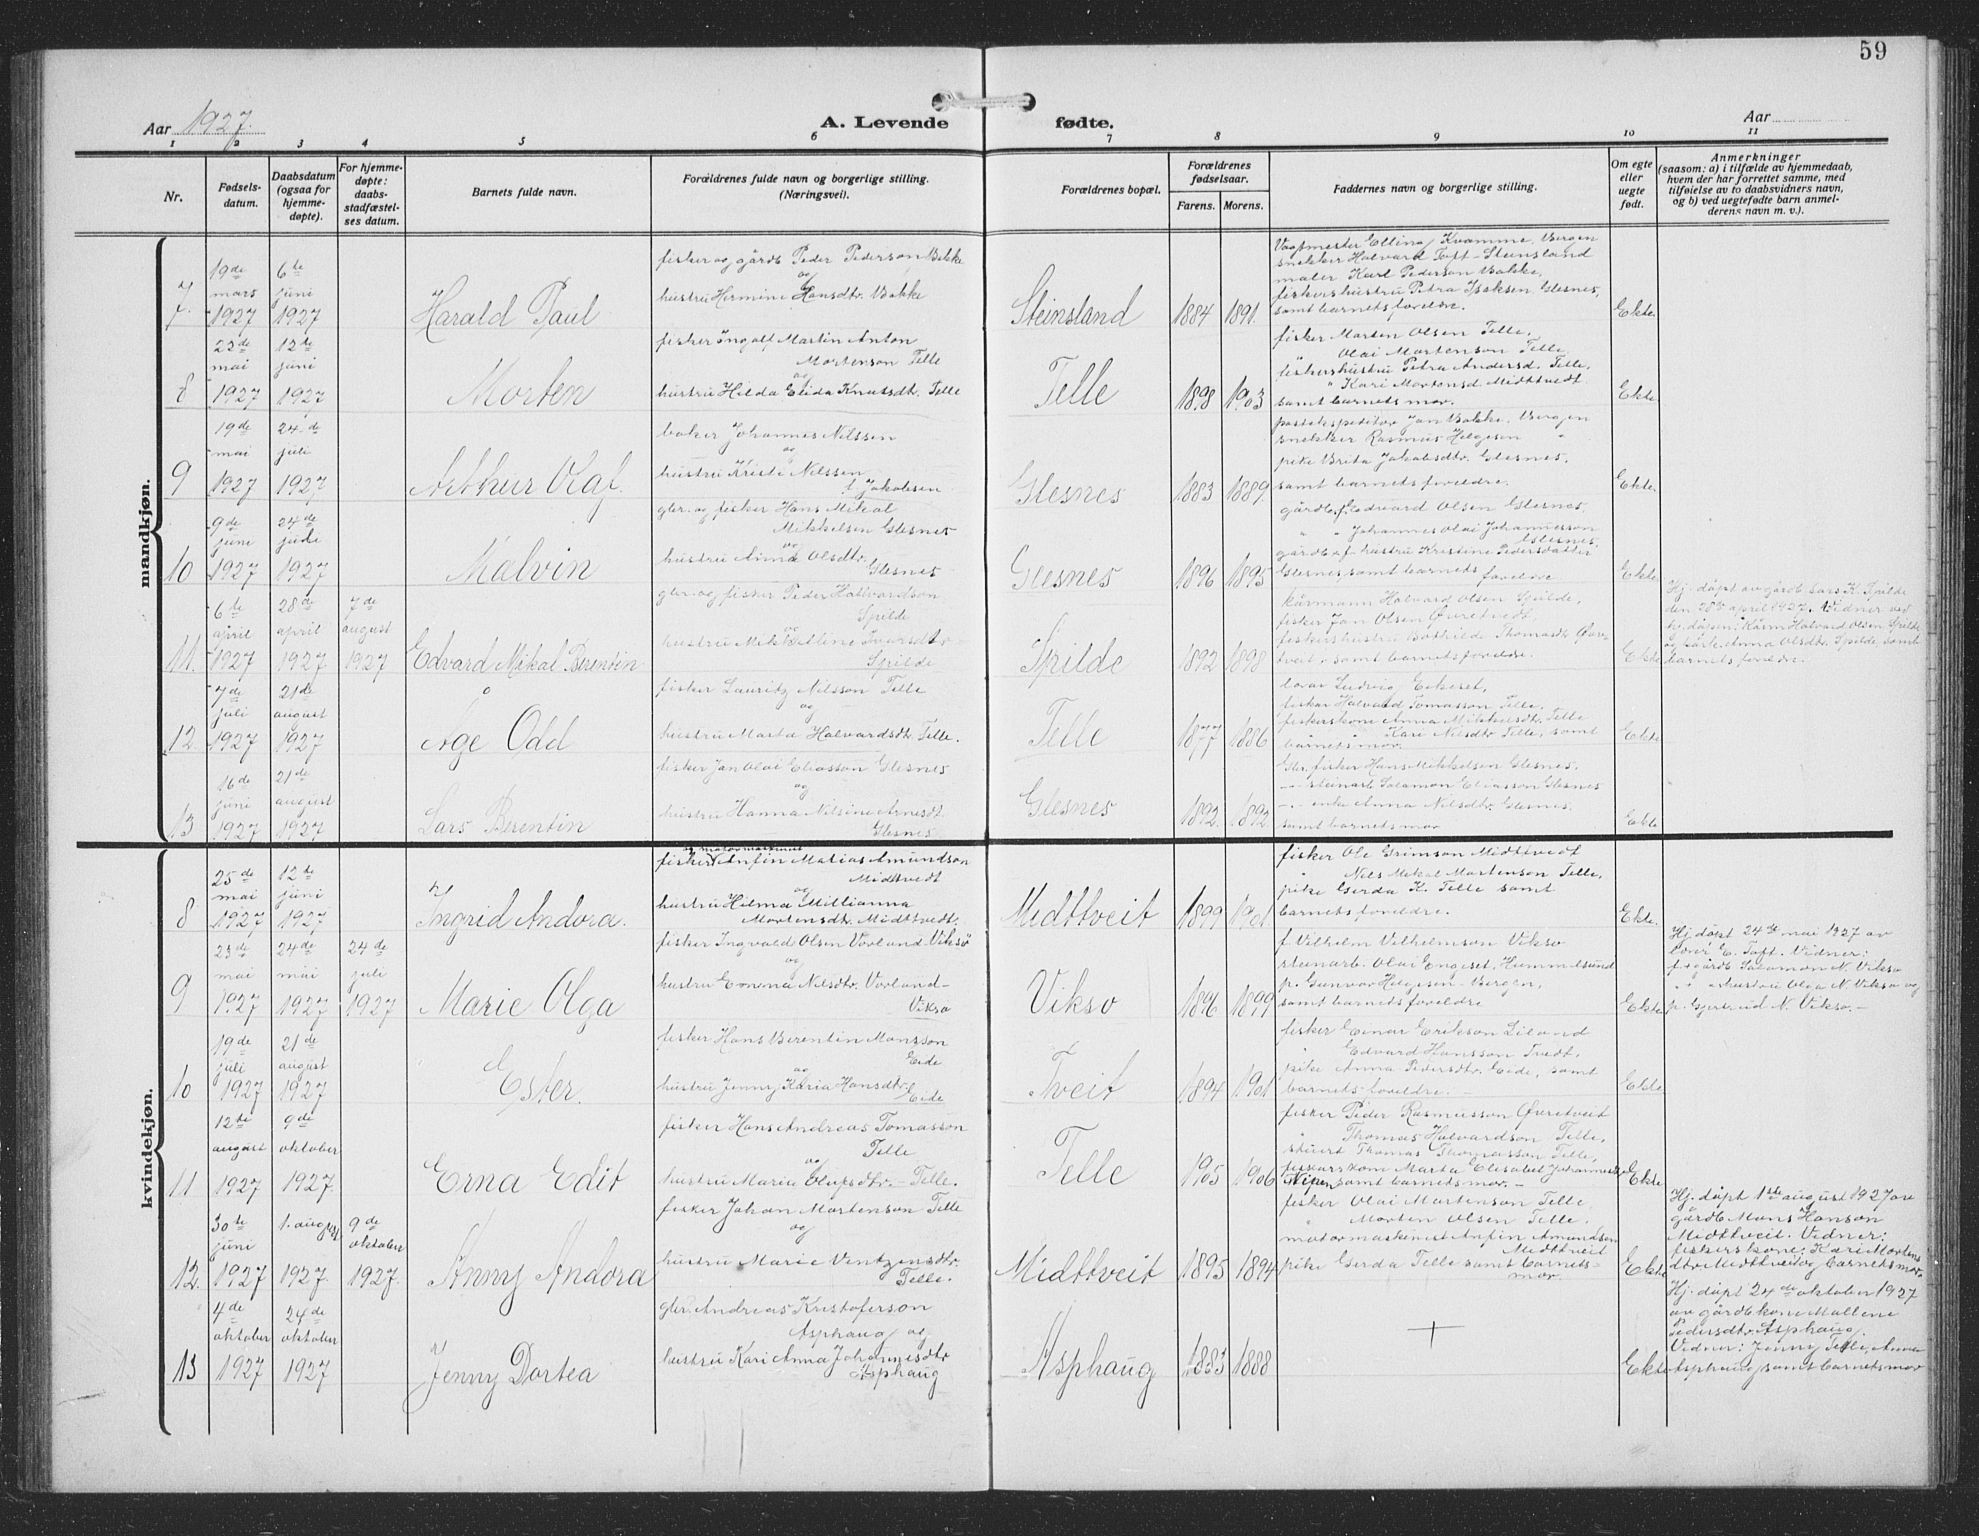 59
Aar 1927.
A. Levende fødte.
Aar
1 2 3 4 5 6 7 8 9 10 11
Nr.
Fødsels-
datum.
Daabsdatum
(ogsaa for
hjemme-
døpte).
For hjemme-
døpte:
daabs-
stadfæstel-
ses datum.
Barnets fulde navn.
Forældrenes fulde navn og borgerlige stilling.
(Næringsvei).
Forældrenes bopæl.
Forældrenes
fødselsaar.
Farens. Morens.
Faddernes navn og borgerlige stilling.
Om egte
eller
uegte
født.
Anmerkninger
(saasom: a) i tilfælde av hjemmedaab,
hvem der har forrettet samme, med
tilføielse av to daabsvidners navn,
og b) ved uegtefødte barn anmel-
derens navn m. v.).
mandkjøn.
7.
19de
mars
1927
6te
juni
1927
Harald Paul
fisker og gårdb Peder Pederson Bakke
og
hustru Hermine Hansdtr. Bakke
Steinsland
1884 1891.
Vagtmester Elling Kvamme, Bergen
snekker Halvard Toft - Steinsland
maler Karl Pederson Bakke,
fiskershustru Petra Isaksen Glesnes,
samt barnets foreldre.
Ekte.
8
22de
mai
1927
12te
juni
1927
Morten
fisker Ingolf Martin Anton
Mortenson Telle
og
hustru Hilda Elida Knutsdtr. Telle
Telle
1898 1903
fisker Morten Olsen Telle,
" Olai Mortenson Telle
fiskershustru Petra Andersd. Telle,
" Kari Mortensd Midttvedt
samt barnets mor.
Ekte.
9
19de
mai
1927
24.de
juli
1927
Arthur Olaf.
baker Johannes Nilssen
og
hustru Kristi Nilssen
f. Jakobsen
Glesnes
1883 1889.
postekspeditør Jan Bakke, Bergen
snekker Rasmus Helgesen "
pike Brita Jakobsdtr. Glesnes.
samt barnets foreldre.
Ekte.
10
9de
juni
1927
24de
1927
Malvin
gbr. og fisker Hans Mikal
Mikkelsen Glesnes
og
hustru Anna Olsdtr.
Glesnes
Glesnes
1896 1895
gårdb. f. Edvard Olsen Glesnes,
" " Johannes Olai Johannesson
Glesnes,
gårdb. f. hustru Kristine Pedersdatter
Glesnes, samt barnets foreldre
Ekte.
11.
6te
april
1927
28de
april
1927
7de
august
1927
Edvard Mikal Berentin
gbr. og fisker Peder Halvardson
Spilde
og
hustru Mikkeline Ivarsdtr.
Spilde
Spilde
1892 1898
kårmann Halvard Olsen Spilde,
fisker Jan Olsen Øvretveit,
fiskershustru Bothilde Thomasdtr Øvre
tveit, samt barnets foreldre.
Ekte
Hj. døpt av gårdb. Lars K. Spilde
den 20de april 1927. Vidner ved
hj. dåpen: Kårm Halvard Olsen Spilde
og kårk. Anna Olsdtr. Spilde, samt
barnets foreldre.
12.
7de
juli
1927
21de
august
1927
Åge Odd
fisker Lauritz Nilsson Telle
og
hustru Marta Halvardsdtr. Telle.
Telle
1877 1886
lærar Ludvig Eikeset,
fisker Halvard Tomasson Telle,
fiskerskone Anna Mikkelsdtr. Telle
" Kari Nilsdtr Telle, samt
barnets mor.
Ekte
13
16de
juni
1927
21de
august
1927
Lars Berentin
fisker Jan Olai Eliasson Glesnes
og
hustru Hanna Nilsine Arnesdt.
Glesnes.
Glesnes
1892. 1892
Gbr. fisker Hans Mikkelsen Glesnes,
- - steinarb. Salamon Eliasson Glesnes
- - enke Anna Nilsdtr. Glesnes.
samt barnets mor
Ekte.
kvindekjøn.
8
25de
mai
1927
12te
juni
1927
Ingrid Andora.
og motormaskinist
fisker Anfin Matias Amundson
Midttvedt
og
hustru Hilma Millianna
Mortensdtr. Midttvedt.
Midttveit
1899 1901.
fisker Ole Grimson Midttvedt
" Nils Mikal Mortenson Telle,
pike Gerda K. Telle samt
barnets foreldre.
Ekte.
9
23de
mai
1927
24de
mai
1927
24de
juli
1927
Marie Olga
fisker Ingvald Olsen Vorland-Viksø
og
hustru Emma Nilsdtr. Vorland-
Viksø
Viksø
1896 1899
f. Vilhelm Vilhelmson Viksø
steinarb. Olai Engeset, Hummelsund
p. Gunvor Helgesen - Bergen,
samt barnets foreldre
Ekte
Hj. døpt 24de mai 1927 av
lærer E. Toft. Vidner:
f. + gårdb. Salamon N. Viksø
" " hustru Olga N. Viksø og
p. Gjertrud N. Viksø. -
10
19de
juli
1927
21de
august
1927
Ester.
fisker Hans Berentin Monsson
Eide
og
hustru Jenny Karia Hansdtr.
Eide
Tveit
1894 1901
fisker Einar Erikson Liland
" Edvard Hansson Tvedt.
pike Anna Pedersdtr. Eide, samt
barnets foreldre. -
Ekte
11
12te
august
1927
9de
oktober
1927.
Erna Edit
fisker Hans Andreas Tomasson
Telle
og
hustru Maria Olufsdtr. - Telle.
Telle
1905 1906
fisker Peder Rasmusson Øvretveit
" Thomas Halvardson Telle,
stuert Thomas Thomasson Telle,
fiskerskom Marta Elisabet Johannesd.
samt barnets mor. -
Ekte
12.
30te
juni
1927
1. august
1927.
9de
oktober
1927.
Anny Andora
fisker Johan Mortenson Telle
og
hustru Marie Ventzensdtr.
Telle.
Midttveit
1895 1894
fisker Olai Mortenson Telle
" Morten Olsen Telle.
motormaskenist Anfin Amundsen
Midttveit
pike Gerda Telle samt barnets-
mor.
Ekte
Hj. døpt 1ste august 1927 av
gårdb. Mons Hanson
Midttveit. Vidner:
fiskerskone: Kari Mortens
dtr. Midttveit og barnets mor.
13
4de
oktober
1927
24de
oktober
1927
Jenny Dortea
gbr. Andreas Kristoferson
Asphaug og
hustru Kari Anna Johannesdtr
Asphaug
Asphaug
1883 1888
+
Ekte
Hj. døpt 24de oktober 1927
av gårdbkone Mallene
Pedersdtr. Asphaug.
Vidner: Jenny Telle, Anna
Asphaug, samt barnets mor